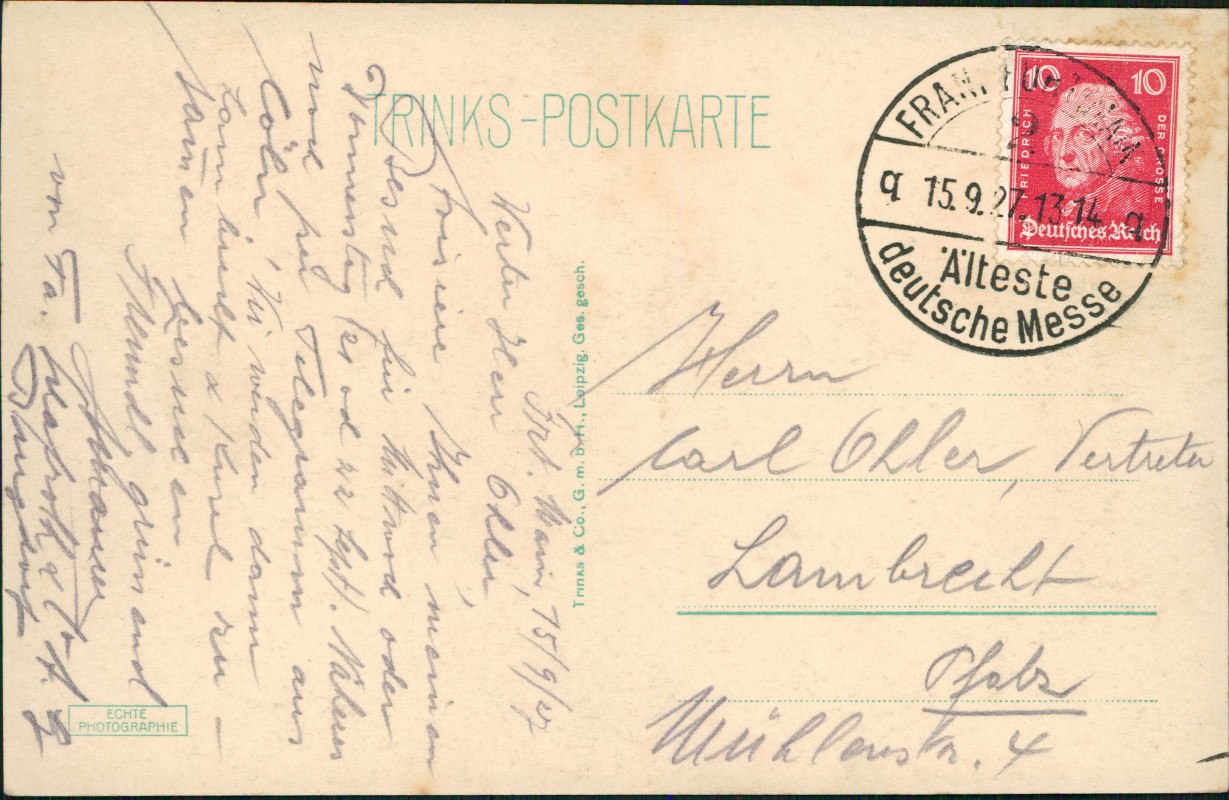 TRINKS-POSTKARTE
Frkf. Main, 15/9/27
Werter Herr Ohler,
Avisiere Ihnen meinen
Besuch für Mittwoch oder
Donnerstag 21 od 22 Sept. Näheres
noch per Telegramm aus
Cöln, wir werden dann
Lambrecht &
zusammen besuchen
Freundl. grüssend
von Fa.
Trinks & Co., G. m. b. H., Leipzig, Ges. gesch.
ECHTE
PHOTOGRAPHIE
FRANKFURT (MAIN)
2
q 15.9.27. 13-14 q
Älteste
deutsche Messe
10 10
FRIEDRICH DER GROSSE
Deutsches Reich
Herrn
Carl Ohler, Vertreter
Lambrecht
Pfalz
Mühlenstr. 4